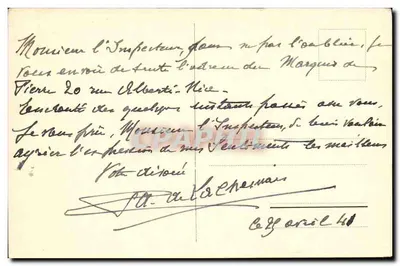 Monsieur l'Inspecteur, pour ne pas l'oublier, je
vous envoie de suite l'adresse du Marquis de
Pierre 20 rue Alberti - Nice.
des quelques instants passés avec vous.
Je vous prie, Monsieur l'Inspecteur, de bien vouloir
agréer l'expression de mes sentiments les meilleurs
Votre dévoué
de
le 25 avril 41